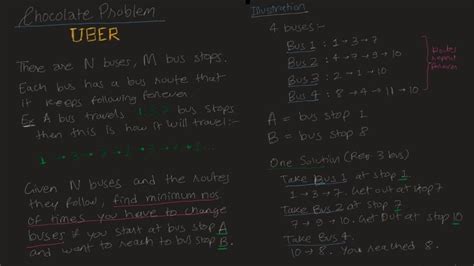 Chocolate Problem
UBER
There are N buses, M bus stops.
Each bus has a bus route that
it keeps following forever
Ex A bus travels 1 3 7 bus stops
then this is how it will travel:-
1 → 3 → 7 → 1 → 3 → 7 → 1 ...
Given N buses and the routes
they follow, find minimum nos.
of times you have to change
buses if you start at bus stop A
and want to reach to bus stop B.
Illustration
4 buses:-
Bus 1 : 1 → 3 → 7
Bus 2 : 4 → 7 → 9 → 10
Bus 3 : 2 → 1 → 10
Bus 4 : 8 → 4 → 11 → 10
Routes
repeat
forever
A = bus stop 1
B = bus stop 8
One Solution (Req 3 bus)
Take Bus 1 at stop 1
1 → 3 → 7. Get out at stop 7
Take Bus 2 at stop 7
7 → 9 → 10. Get Out at stop 10
Take Bus 4
10 → 8. You reached 8.